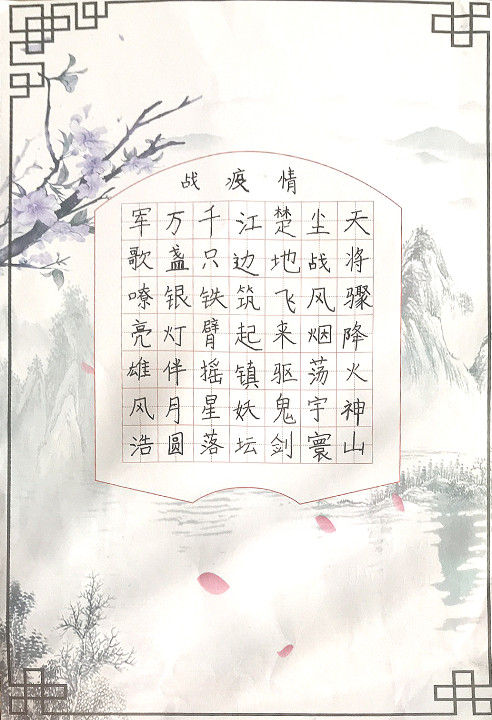 战疫情
天将骤降火神山
尘战风烟荡宇寰
楚地飞来驱鬼剑
江边筑起镇妖坛
千只铁臂摇星落
万盏银灯伴月圆
军歌嘹亮雄风浩